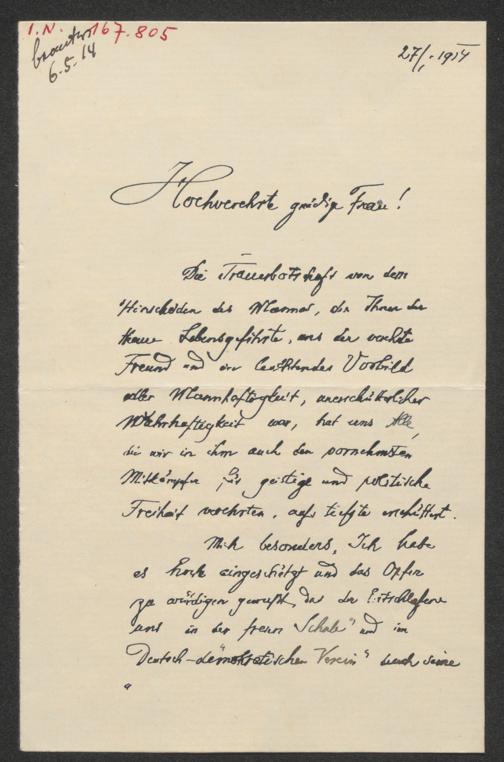 I.N. 167.805
beantw.
6.5.14
27/I. 1914
Hochverehrte gnädige Frau!
Die Trauerbotschaft von dem
Hinscheiden des Mannes, der Ihnen der
theure Lebensgefährte, uns der wackte
Freund und ein leuchtendes Vorbild
edler Mannhaftigkeit, unerschütterlicher
Wahrhaftigkeit war, hat uns Alle,
die wir in ihm auch den vornehmsten
Mitkämpfer für geistige und politische
Freiheit verehrten, aufs tiefste erschüttert.
Mich besonders. Ich habe
es hoch eingeschätzt und das Opfer
zu würdigen gewußt, das der Entschlafene
uns in der freien Schule" und im
Deutsch-demokratischen Verein" durch seine